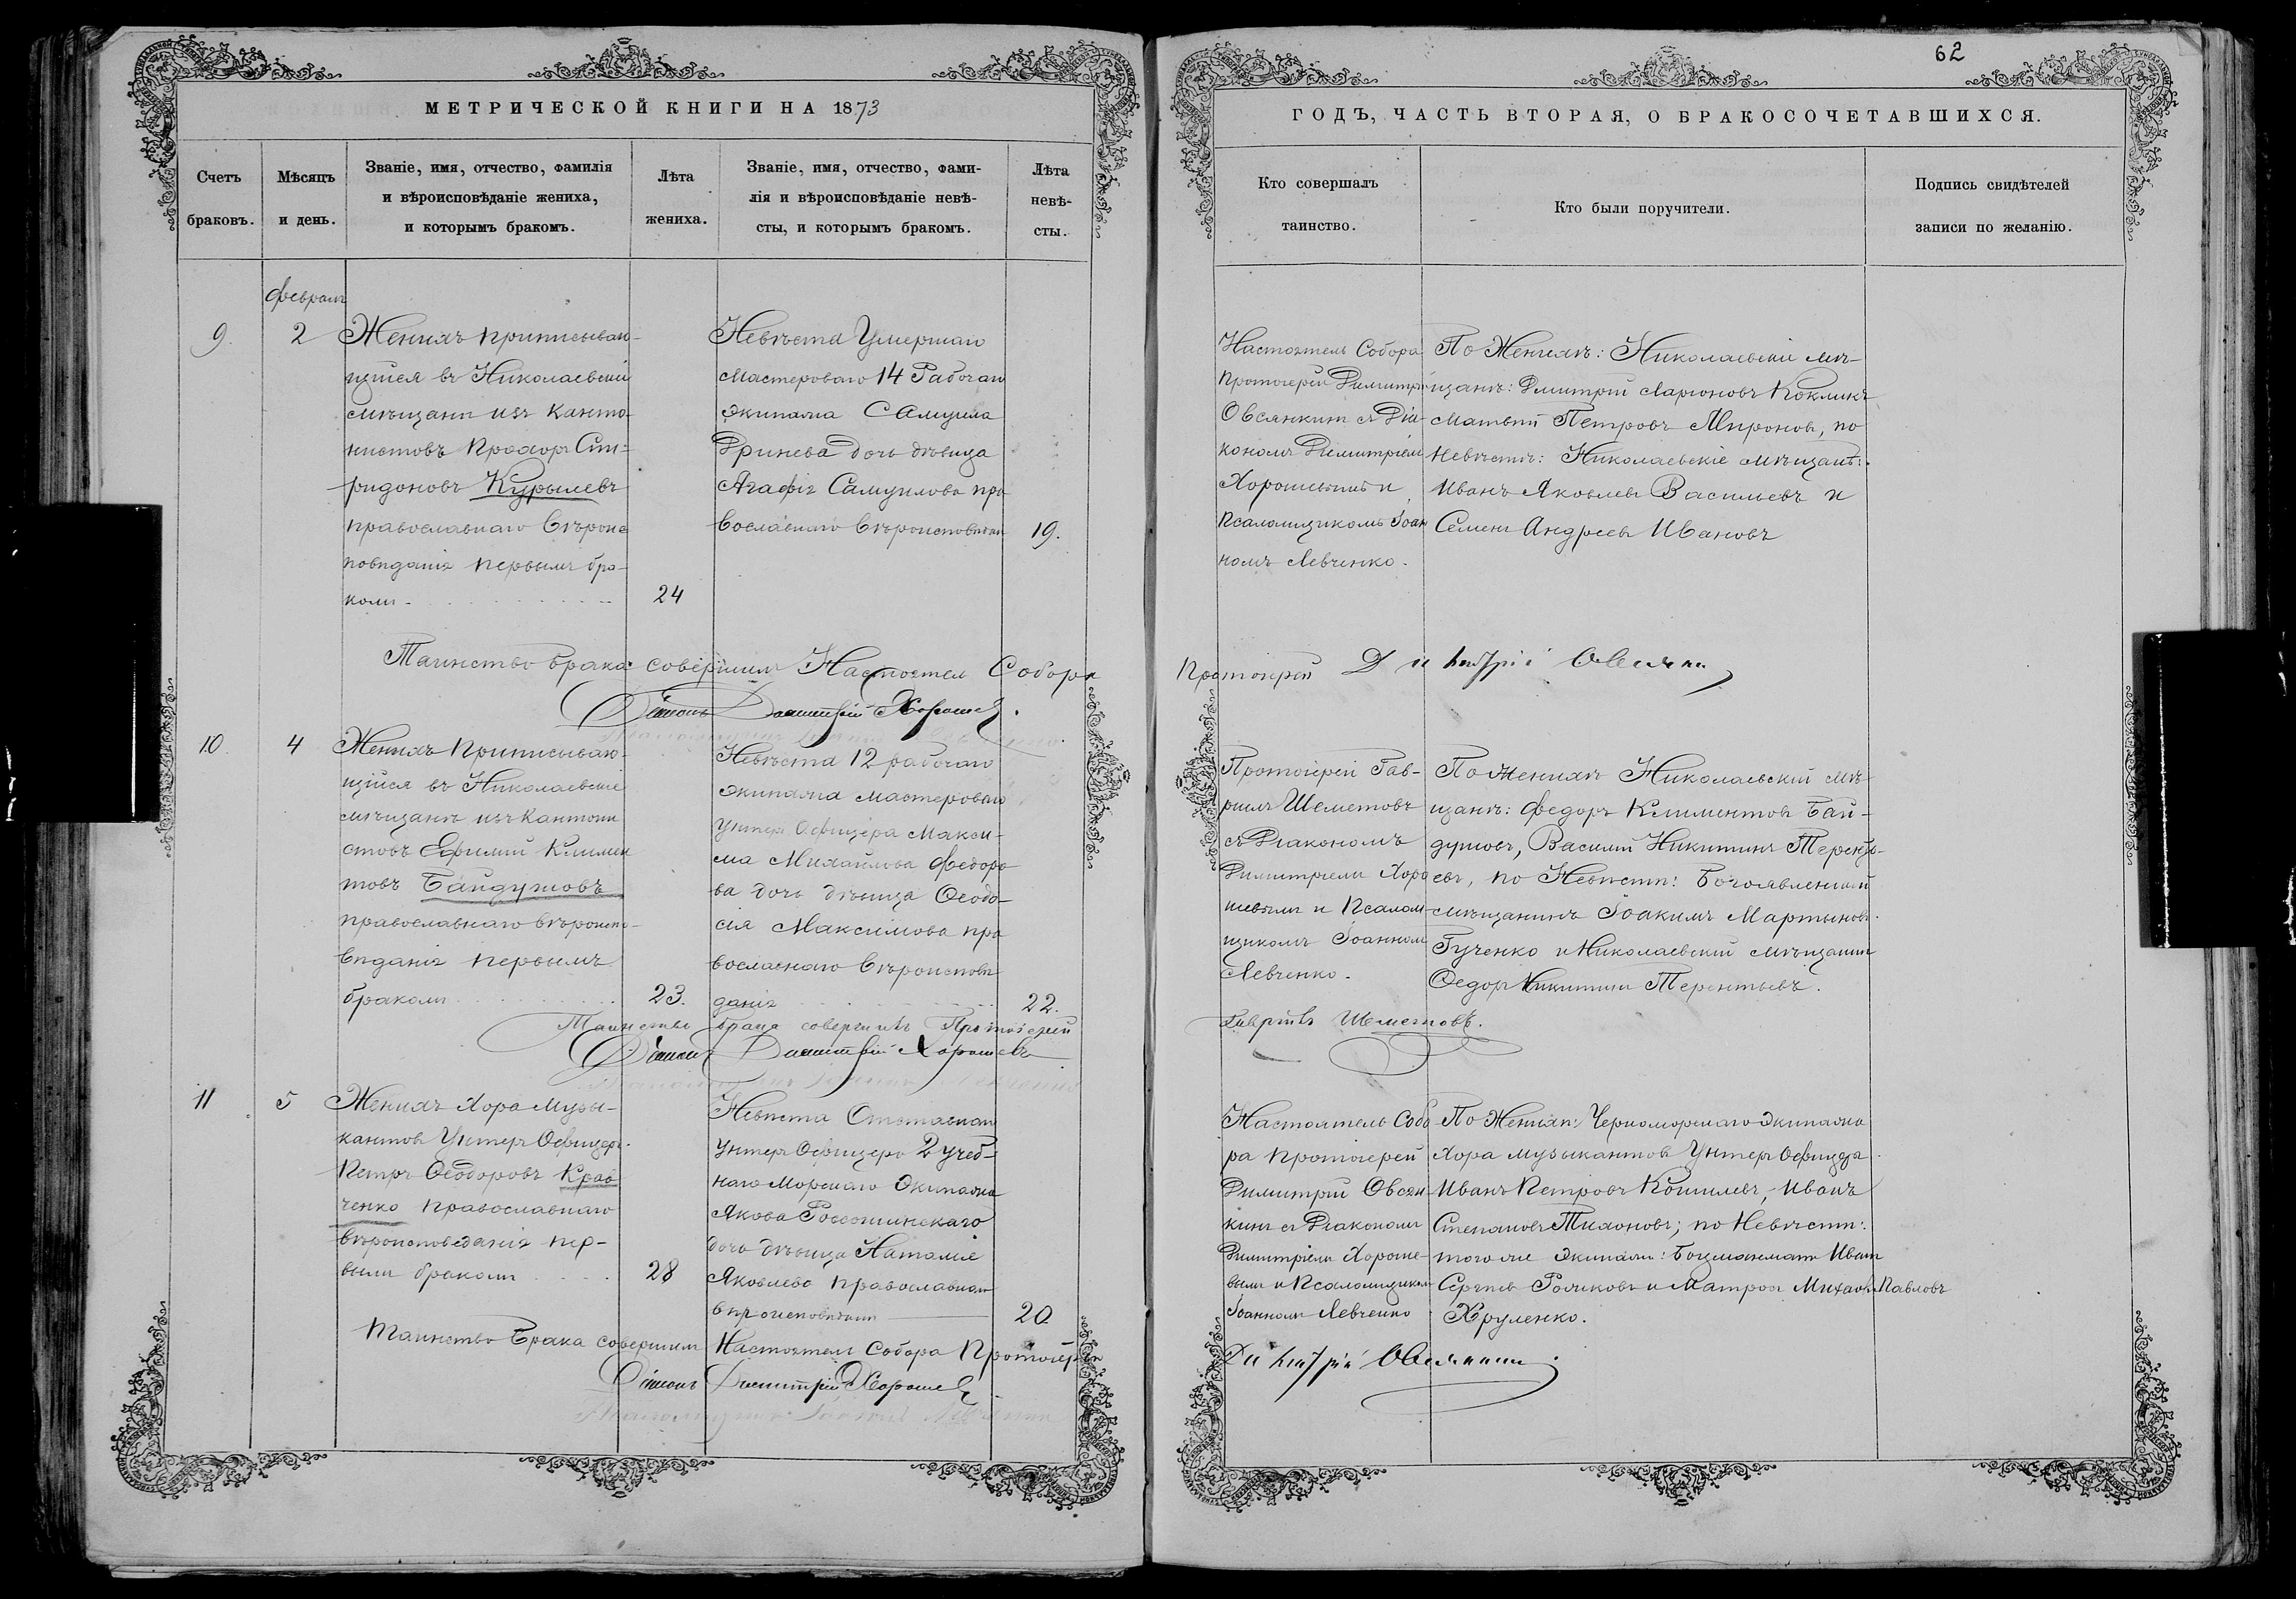 62
МЕТРИЧЕСКОЙ КНИГИ НА 1873
Счетъ
браковъ.
Мѣсяцъ
и день.
Званіе, имя, отчество, фамилія
и вѣроисповѣданіе жениха,
и которымъ бракомъ.
Лѣта
жениха.
Званіе, имя, отчество, фами-
лія и вѣроисповѣданіе невѣ-
сты, и которымъ бракомъ.
Лѣта
невѣ-
сты.
ГОДЪ, ЧАСТЬ ВТОРАЯ, О БРАКОСОЧЕТАВШИХСЯ.
Кто совершалъ
таинство.
Кто были поручители.
Подпись свидѣтелей
записи по желанію.
февраль
9.
2
Женихъ приписываю-
щійся въ Николаевскіе
мѣщане изъ канто-
нистовъ Прохоръ Спи-
ридоновъ Курылевъ
православнаго вѣроис
повѣданія первымъ бра-
комъ
24
Невѣста Умершаго
мастероваго 14 Рабочаго
экипажа Самуила
Гринева дочь дѣвица
Агафія Самуилова пра
вославнаго вѣроисповѣдан
19.
Настоятель Собора
Протоіерей Димитрій
Овсянкинъ съ Діа-
кономъ Димитріемъ
Хорошевымъ и
Псаломщикомъ Іоан
номъ Левченко.
По Женихѣ: Николаевскіе мѣ-
щане: Дмитрій Ларіоновъ
Матвѣй Петровъ Мироновъ, по
Невѣстѣ: Николаевскіе мѣщане:
Иванъ Яковлевъ Васильевъ и
Семенъ Андреевъ Ивановъ
Таинство брака совершилъ Настоятель Собора
Протоіерей Димитрій Овсянкин
Діаконъ Димитрій Хорошев.
10.
4
Женихъ Приписываю-
щійся въ Николаевскіе
мѣщане изъ Кантони
стовъ Ефимій Климен
товъ Байдужовъ
православнаго вѣроиспо-
вѣданія первымъ
бракомъ
23.
Невѣста 12 рабочаго
экипажа мастероваго
унтеръ Офицера Макси-
ма Михайлова Федоро
ва дочь дѣвица Ѳеодо-
сія Максимова пра
вославнаго вѣроисповѣ
данія
22.
Протоіерей Гав-
ріилъ Шеметовъ
съ Діакономъ
Димитріемъ Хоро
шевымъ и Псалом
щикомъ Іоанномъ
Левченко.
По Женихѣ Николаевскій мѣ-
щане: Федоръ Климентов Бай-
дужовъ, Василій Никитинъ Терентье-
евъ, по Невѣстѣ: Богоявленскій
мѣщанинъ Іоакимъ Мартыновъ
Гученко и Николаевскій мѣщанин
Ѳедоръ Никитинъ Терентьевъ.
Таинство брака совершилъ Протоіерей
Гавріилъ Шеметовъ.
Діаконъ Димитрій Хорошевъ
11
5
Женихъ Хора Музы-
кантовъ Унтеръ Офицеръ
Петръ Ѳеодоровъ Крав
ченко Православнаго
вѣроисповеданія пер-
вымъ бракомъ
28
Невѣста Отставнаго
Унтеръ Офицера 2 учеб-
наго Морскаго Экипажа
Якова Россошинскаго
дочь дѣвица Наталія
Яковлева православнаго
вѣроисповѣданія
20
Настоятель Собо
ра Протоіерей
Димитрій Овсян-
кинъ съ Діакономъ
Димитріемъ Хороше-
вымъ и Псаломщиком
Іоанномъ Левченко
По Женихѣ: Черноморскаго экипажа
Хора музыкантовъ Унтеръ Офицера
Иванъ Петровъ Кошилевъ, Иванъ
Степановъ Тихоновъ; по Невѣстѣ:
того же экипажа: Боцманматъ Иван
Сергѣевъ Рожковъ и Матросъ Михаилъ Павловъ
Хруленко.
Таинство Брака совершилъ Настоятель Собора Протоіерей
Димитрій Овсянкин
Діаконъ Димитрій Хорошев